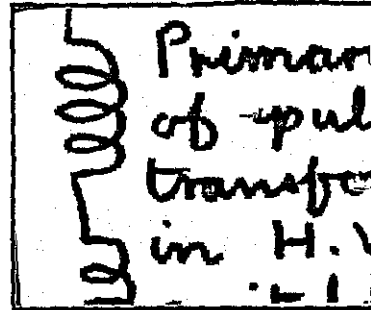 Primar
of pul
transfo
in H.V